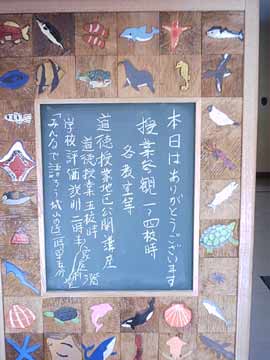 本日はありがとうございます
授業参観 一〜四校時
各教室等
道徳授業地区公開講座
道徳授業 五校時
学校評価説明 二時
「みんなで語ろう